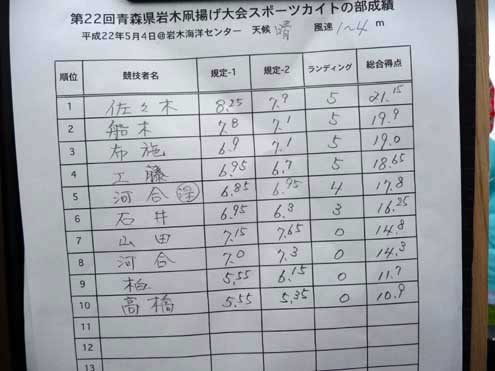 第22回青森県岩木凧揚げ大会スポーツカイトの部成績
平成22年5月4日@岩木海洋センター 天候 晴 風速 1〜4 m
順位 競技者名 規定-1 規定-2 ランディング 総合得点
1 佐々木 8.25 7.9 5 21.15
2 船木 7.8 7.1 5 19.9
3 布施 6.9 7.1 5 19.0
4 工藤 6.95 6.7 5 18.65
5 河合 6.85 6.95 4 17.8
6 石井 6.95 6.3 3 16.25
7 山田 7.15 7.65 0 14.8
8 河合 7.0 7.3 0 14.3
9 柏 5.55 6.15 0 11.7
10 高橋 5.55 5.35 0 10.9
11
12
13